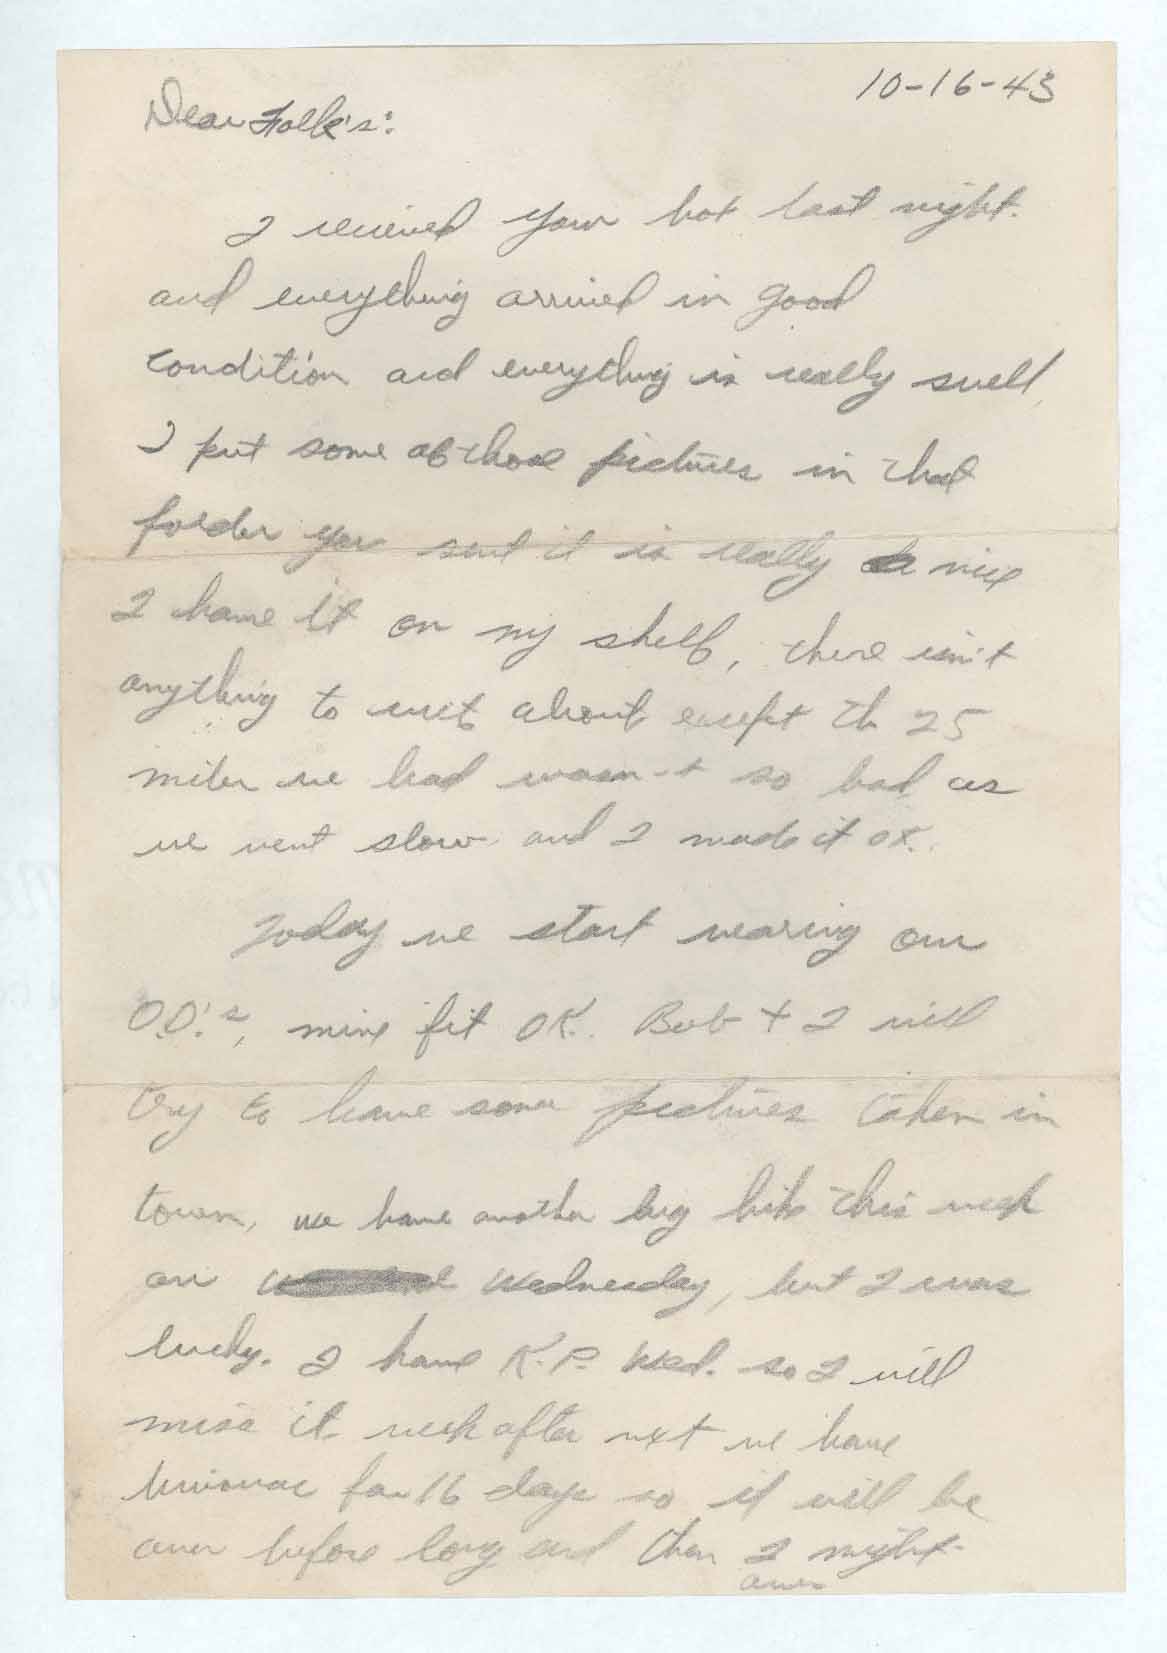 10-16-43
Dear Folk's:
I recieved your box last night.
and everything arrived in good
condition and everything is really swell,
I put some of those pictures in that
folder you sent it is really nice
I have it on my shelf, there isn't
anything to write about except th 25
miler we had wasn-t so bad as
we went slow and I made it OK.
Today we start wearing our
O.D.'s, mine fit OK. Bob + I will
try to have some pictures taken in
town, we have another big hike this week
on Wednesday, but I was
lucky. I have K.P. Wed. so I will
miss it week after next we have
bivouac for 16 days so it will be
over before long and then I might
over